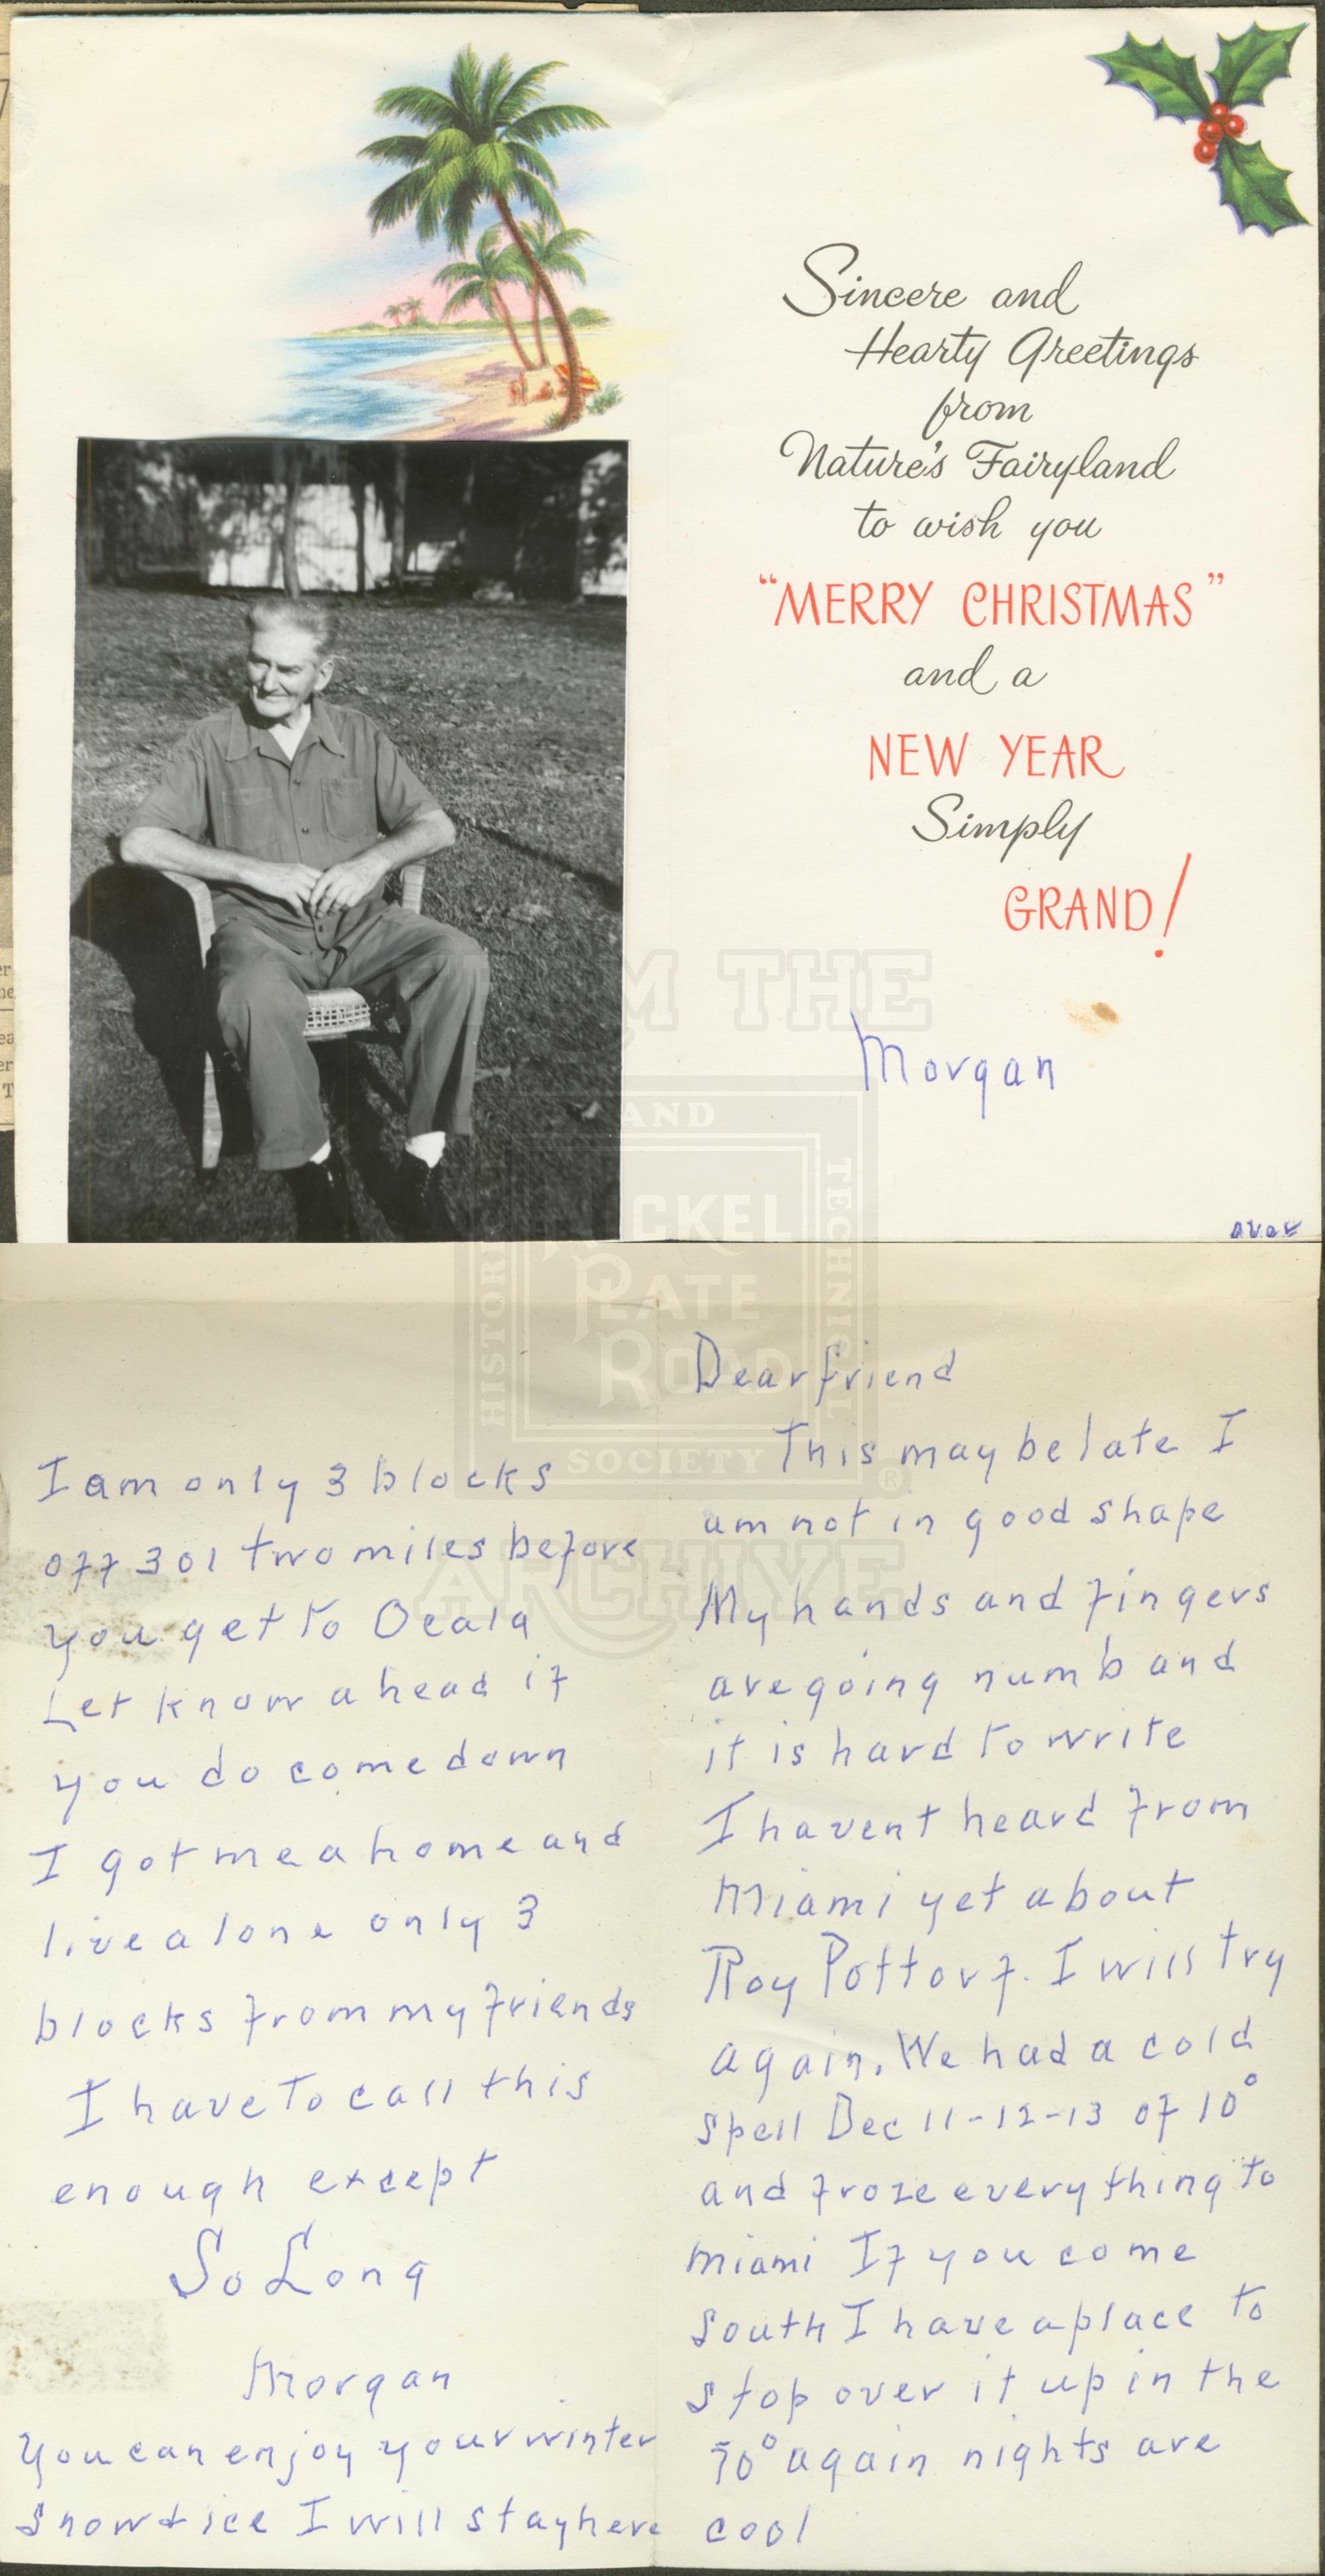 Sincere and
Hearty Greetings
from
Nature's Fairyland
to wish you
"MERRY CHRISTMAS"
and a
NEW YEAR
Simply
GRAND!
Morgan
over
FROM THE
AND
NICKEL
PLATE
ROAD
HISTORICAL
TECHNICAL
SOCIETY
®
ARCHIVE
Dear friend
This may be late I
am not in good shape
My hands and fingers
are going numb and
it is hard to write
I havent heard from
Miami yet about
Roy Pottorf. I will try
again. We had a cold
spell Dec 11-12-13 of 10°
and froze everything to
Miami If you come
South I have a place to
stop over it up in the
70° again nights are
cool
I am only 3 blocks
off 301 two miles before
you get to Ocala
Let know ahead if
you do come down
I got me a home and
live alone only 3
blocks from my friends
I have to call this
enough except
So Long
Morgan
You can enjoy your winter
snow & ice I will stay here